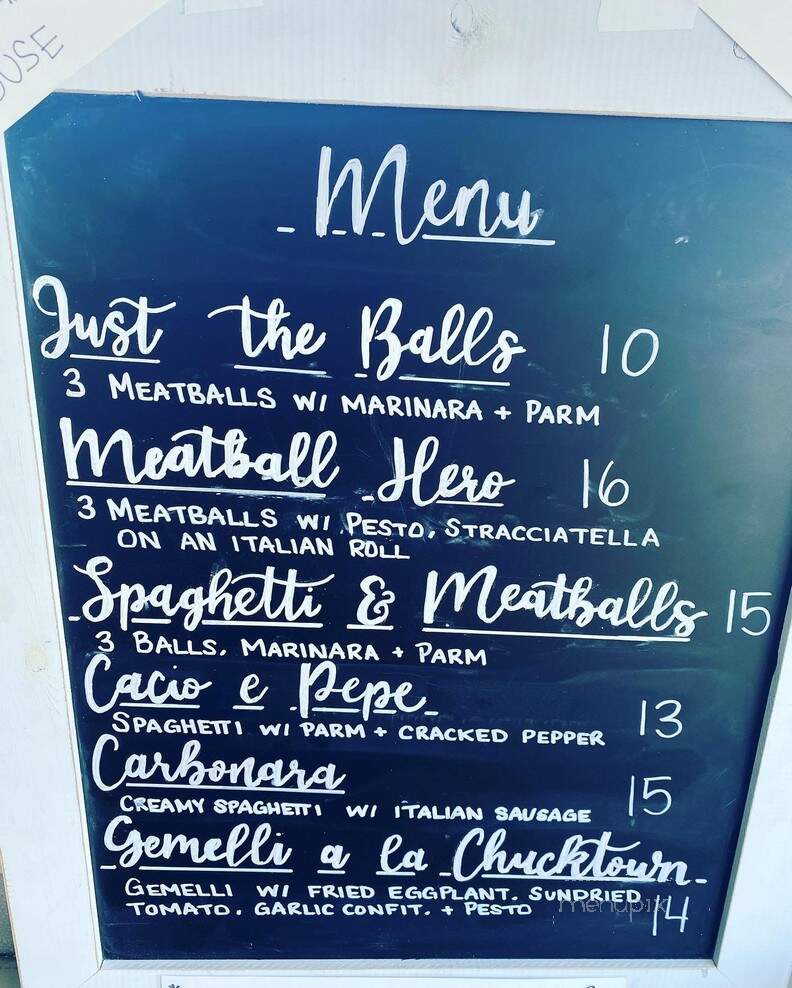 OUSE
Menu
Just the Balls 10
3 MEATBALLS W/ MARINARA + PARM
Meatball Hero 16
3 MEATBALLS W/ PESTO, STRACCIATELLA
ON AN ITALIAN ROLL
Spaghetti & Meatballs 15
3 BALLS, MARINARA + PARM
Cacio e Pepe 13
SPAGHETTI W/ PARM + CRACKED PEPPER
Carbonara 15
CREAMY SPAGHETTI W/ ITALIAN SAUSAGE
Gemelli a la Chucktown
GEMELLI W/ FRIED EGGPLANT, SUNDRIED
TOMATO, GARLIC CONFIT, + PESTO 14
menupix